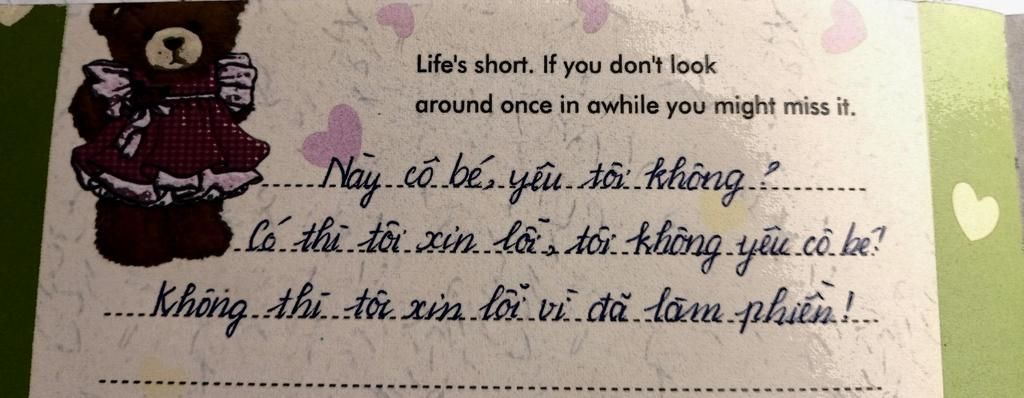 Life's short. If you don't look
around once in awhile you might miss it.
Này cô bé, yêu tôi không?
Có thì tôi xin lỗi, tôi không yêu cô bé!
Không thì tôi xin lỗi vì đã làm phiền!